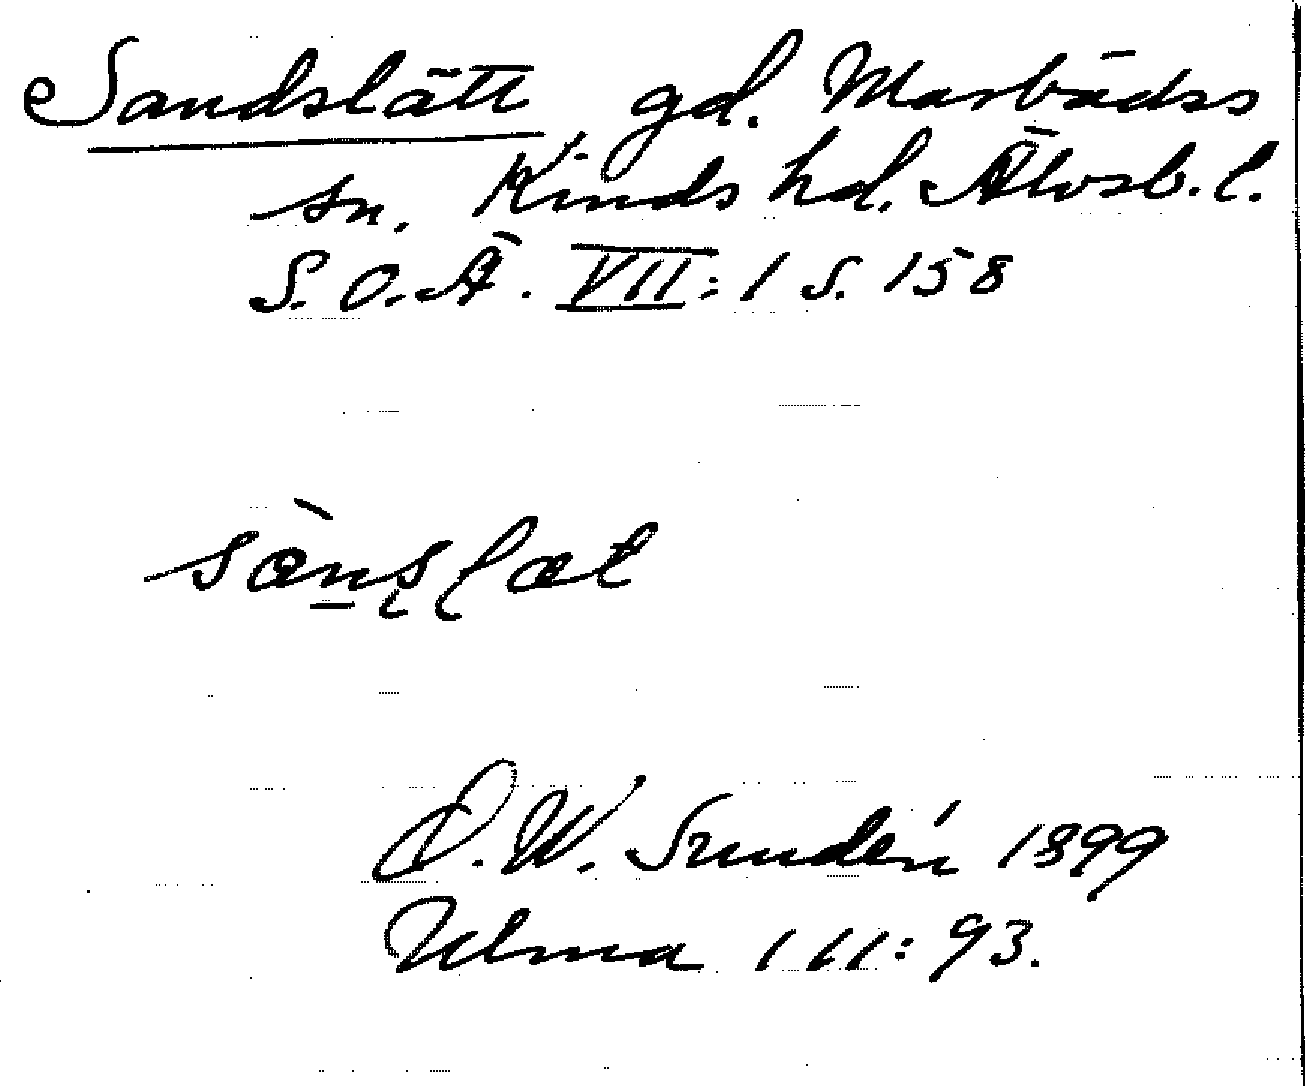 Sandslätt gd. Marbäcks
sn. Kinds hd. Älvsb. l.
S. O. Ä. VII: 1 S. 158
sæ̀n̠slæt
D. W. Sundén 1899
Ulma 111: 93.